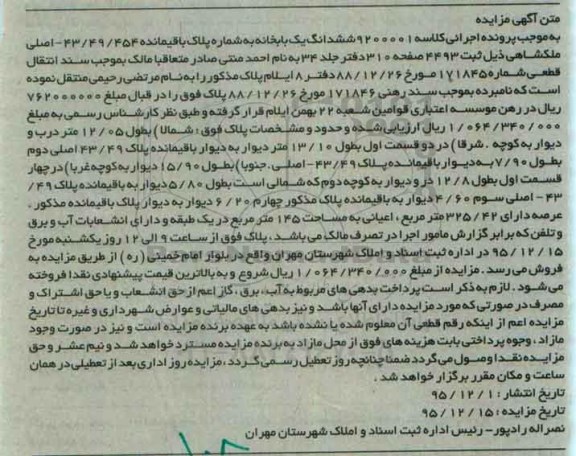 متن آگهی مزایده
به موجب پرونده اجرائی کلاسه ۹۲۰۰۰۰۱ ششدانگ یک بابخانه به شماره پلاک باقیمانده ۴۳/۴۹/۴۵۴ - اصلی
ملکشاهی ذیل ثبت ۴۴۹۳ صفحه ۳۱۰ دفتر جلد ۳۴ به نام احمد منتی صادر متعاقبا مالک بموجب سند انتقال
قطعی شماره ۱۷۱۸۴۵ مورخ ۸۸/۱۲/۲۶ دفتر ۸ ایلام پلاک مذکور را به نام مرتضی رحیمی منتقل نموده
است که نامبرده بموجب سند رهنی ۱۷۱۸۴۶ مورخ ۸۸/۱۲/۲۶ پلاک فوق را در قبال مبلغ ۷۶۲۰۰۰۰۰۰
ریال در رهن موسسه اعتباری قوامین شعبه ۲۲ بهمن ایلام قرار گرفته و طبق نظر کارشناس رسمی به مبلغ
۱/۰۶۴/۳۴۰/۰۰۰ ریال ارزیابی شده و حدود و مشخصات پلاک فوق : شمالا ) بطول ۱۲/۰۵ متر درب و
دیوار به کوچه . شرقا ) در دو قسمت اول بطول ۱۳/۱۰ متر دیوار به دیوار باقیمانده پلاک ۴۳/۴۹ اصلی دوم
بطول ۷/۹۰ به دیوار باقیمانده پلاک ۴۳/۴۹ - اصلی . جنوبا ) بطول ۱۵/۹۰ دیوار به کوچه غربا ) در چهار
قسمت اول بطول ۱۲/۸ در و دیوار به کوچه دوم که شمالی است بطول ۵/۸۰ دیوار به باقیمانده پلاک ۴۹/
۴۳ - اصلی سوم ۴/۶۰ دیوار به باقیمانده پلاک مذکور چهارم ۶/۲۰ دیوار به دیوار پلاک باقیمانده مذکور .
عرصه دارای ۳۲۵/۴۲ متر مربع ، اعیانی به مساحت ۱۴۵ متر مربع در یک طبقه و دارای انشعابات آب و برق
و تلفن که برابر گزارش مامور اجرا در تصرف مالک می باشد ، پلاک فوق از ساعت ۹ الی ۱۲ روز یکشنبه مورخ
۹۵/۱۲/۱۵ در اداره ثبت اسناد و املاک شهرستان مهران واقع در بلوار امام خمینی ( ره ) از طریق مزایده به
فروش می رسد . مزایده از مبلغ ۱/۰۶۴/۳۴۰/۰۰۰ ریال شروع و به بالاترین قیمت پیشنهادی نقدا فروخته
می شود . لازم به ذکر است پرداخت بدهی های مربوط به آب ، برق ، گاز اعم از حق انشعاب و یا حق اشتراک و
مصرف در صورتی که مورد مزایده دارای آنها باشد و نیز بدهی های مالیاتی و عوارض شهرداری و غیره تا تاریخ
مزایده اعم از اینکه رقم قطعی آن معلوم شده یا نشده باشد به عهده برنده مزایده است و نیز در صورت وجود
مازاد ، وجوه پرداختی بابت هزینه های فوق از محل مازاد به برنده مزایده مسترد خواهد شد و نیم عشر و حق
مزایده نقدا وصول می گردد ضمنا چنانچه روز تعطیل رسمی گردد ، مزایده روز اداری بعد از تعطیلی در همان
ساعت و مکان مقرر برگزار خواهد شد .
تاریخ انتشار : ۹۵/۱۲/۱
تاریخ مزایده : ۹۵/۱۲/۱۵
نصراله رادپور - رئیس اداره ثبت اسناد و املاک شهرستان مهران
۱۰۸